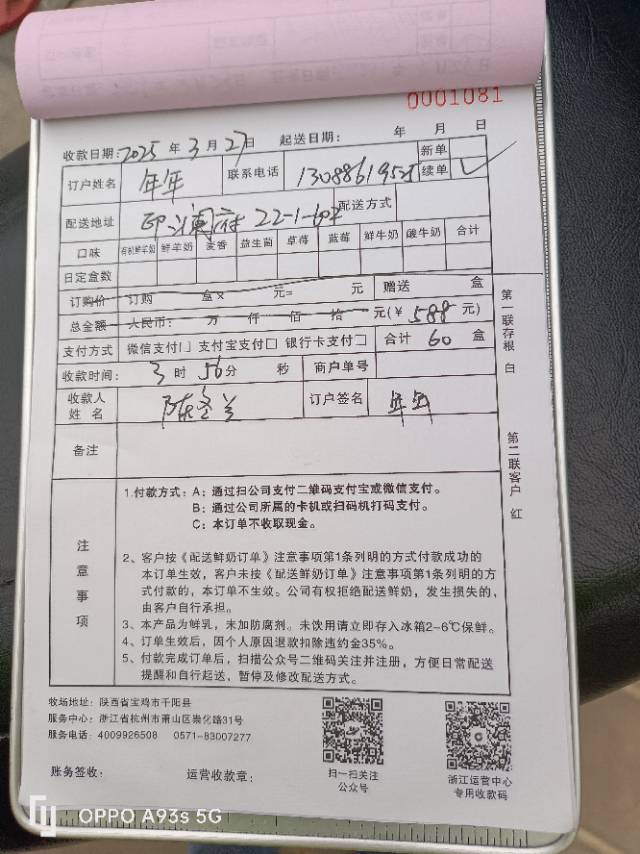 0001081
收款日期：2025 年 3 月 27日 起送日期： 年 月 日
订户姓名 年年 联系电话 13088619525 新单
续单 ✓
配送地址 澜府 22-1-602 配送方式
口味 有机鲜羊奶 鲜羊奶 麦香 益生菌 草莓 蓝莓 鲜牛奶 酸牛奶 合计
日定盒数
订购价 订购 盒× 元= 元 赠送 盒
总金额 人民币： 万 仟 佰 拾 元(￥588 元)
支付方式 微信支付□ 支付宝支付□ 银行卡支付□ 合计 60 盒
收款时间： 3 时 56分 秒 商户单号
收款人
姓 名 陈 订户签名 年年
备注
注意事项
1.付款方式：A：通过扫公司支付二维码支付宝或微信支付。
B：通过公司所属的卡机或扫码机打码支付。
C：本订单不收取现金。
2、客户按《配送鲜奶订单》注意事项第1条列明的方式付款成功的
本订单生效，客户未按《配送鲜奶订单》注意事项第1条列明的方
式付款的，本订单不生效。公司有权拒绝配送鲜奶，发生损失的，
由客户自行承担。
3、本产品为鲜乳，未加防腐剂。未饮用请立即存入冰箱2-6℃保鲜。
4、订单生效后，因个人原因退款扣除违约金35%。
5、付款完成订单后，扫描公众号二维码关注并注册，方便日常配送
提醒和自行起送，暂停及修改配送方式。
第一联存根 白
第二联客户 红
牧场地址：陕西省宝鸡市千阳县
服务中心：浙江省杭州市萧山区崇化路31号
服务电话：4009926508 0571-83007277
账务签收： 运营收款章：
扫一扫关注
公众号
浙江运营中心
专用收款码
OPPO A93s 5G